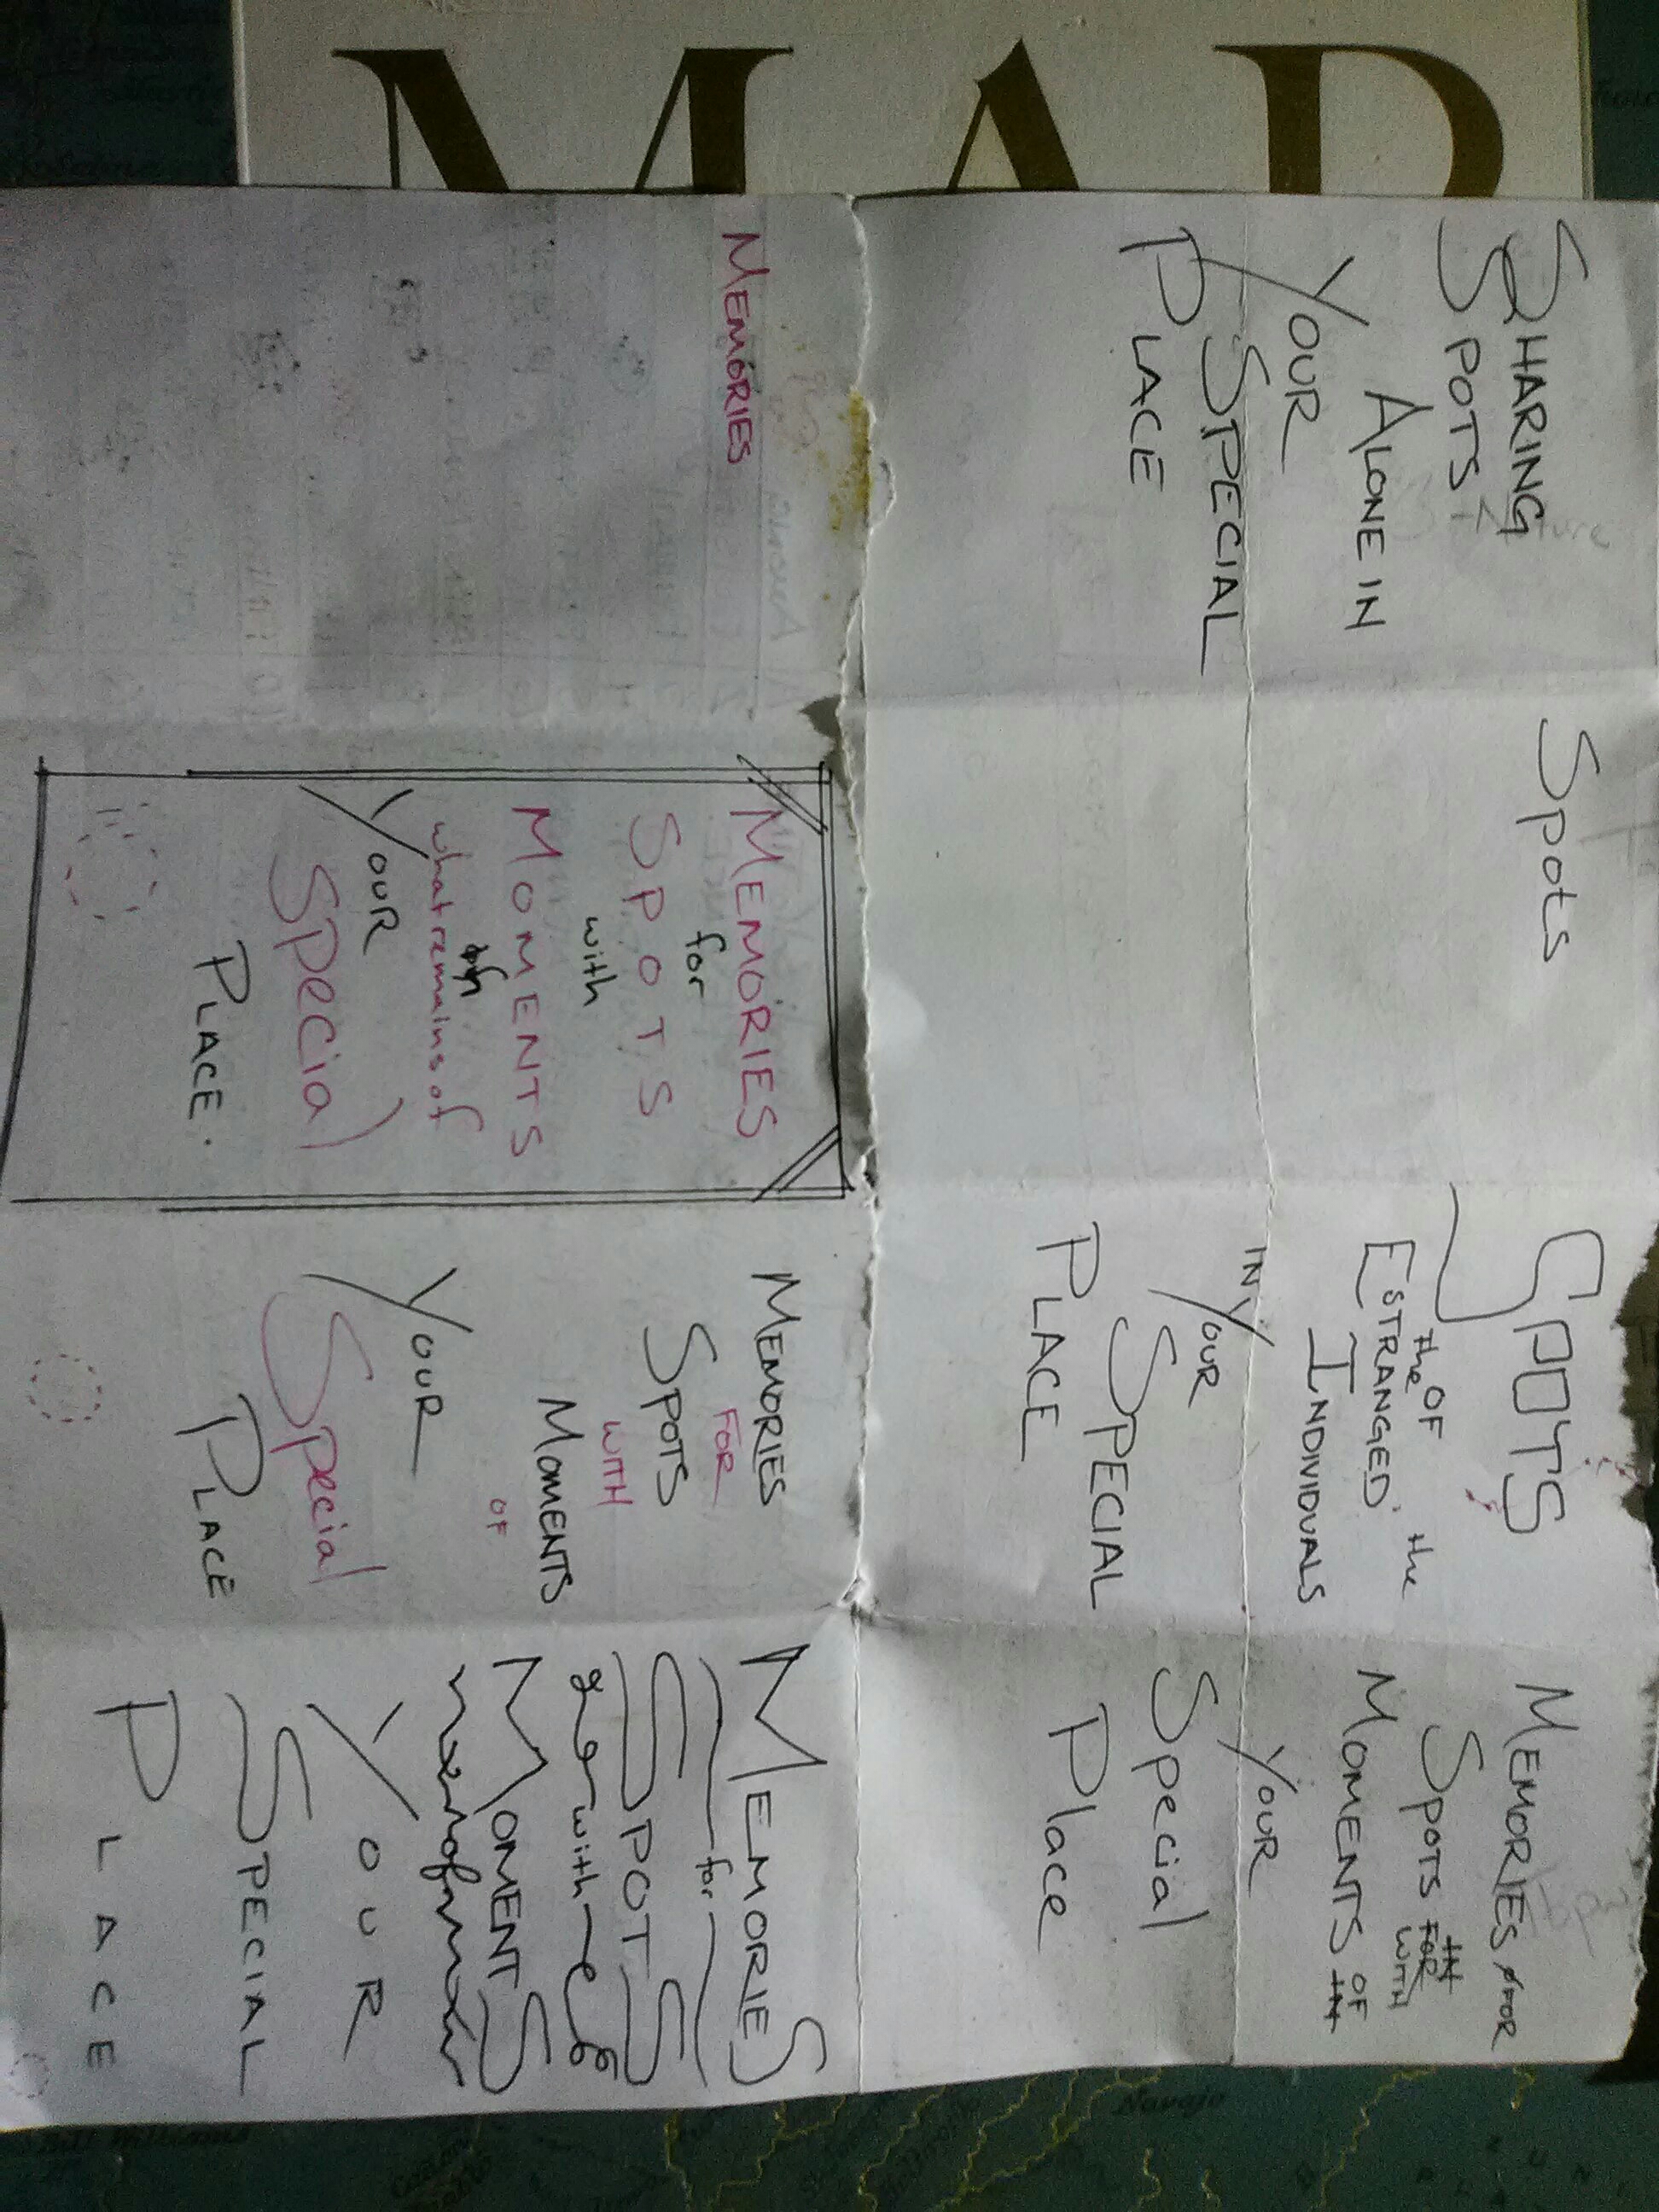 SHARING
SPOTS
ALONE IN
YOUR
SPECIAL
PLACE
Spots
SPOTS
OF the
the
ESTRANGED
INDIVIDUALS
IN YOUR
SPECIAL
PLACE
MEMORIES FOR
SPOTS FOR WITH
MOMENTS OF
YOUR
Special
Place
MEMORIES
MEMORIES
for
SPOTS
with
MOMENTS
of
what remains of
YOUR
Special
PLACE.
MEMORIES
FOR
SPOTS
WITH
MOMENTS
OF
YOUR
Special
PLACE
MEMORIES
for
SPOTS
with
MOMENTS
of
YOUR
SPECIAL
PLACE
Navajo
Bill Williams